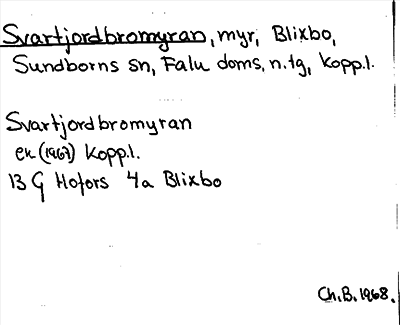 Svartjordbromyran, myr, Blixbo,
Sundborns sn, Falu doms. n. tg, Kopp.l.
Svartjordbromyran
ek (1967) Kopp.l.
13 G Hofors 4a Blixbo
Ch. B. 1968.